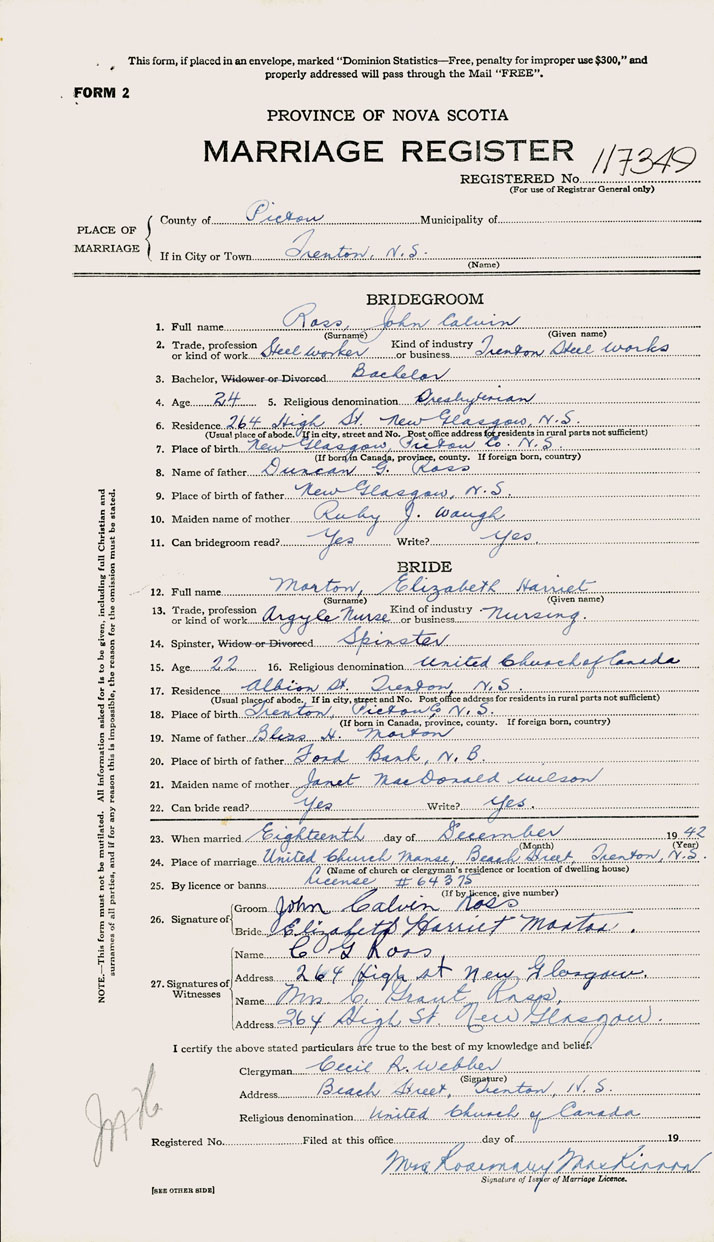 This form, if placed in an envelope, marked "Dominion Statistics—Free, penalty for improper use $300," and
properly addressed will pass through the Mail "FREE".
FORM 2
PROVINCE OF NOVA SCOTIA
MARRIAGE REGISTER
117349
REGISTERED No.
(For use of Registrar General only)
PLACE OF MARRIAGE
County of Pictou Municipality of
If in City or Town Trenton, N.S.
(Name)
BRIDEGROOM
1. Full name Ross, John Calvin
(Surname) (Given name)
2. Trade, profession or kind of work Steel worker Kind of industry or business Trenton Steel Works
3. Bachelor, Widower or Divorced Bachelor
4. Age 24 5. Religious denomination Presbyterian
6. Residence 264 High St. New Glasgow, N.S.
(Usual place of abode. If in city, street and No. Post office address for residents in rural parts not sufficient)
7. Place of birth New Glasgow, Pictou Co. N.S.
(If born in Canada, province, county. If foreign born, country)
8. Name of father Duncan G. Ross
9. Place of birth of father New Glasgow, N.S.
10. Maiden name of mother Ruby J. Waugh
11. Can bridegroom read? Yes Write? Yes.
BRIDE
12. Full name Morton, Elizabeth Harriet
(Surname) (Given name)
13. Trade, profession or kind of work Argyle Nurse Kind of industry or business Nursing.
14. Spinster, Widow or Divorced Spinster
15. Age 22 16. Religious denomination United Church of Canada
17. Residence Albion St. Trenton, N.S.
(Usual place of abode. If in city, street and No. Post office address for residents in rural parts not sufficient)
18. Place of birth Trenton, Pictou Co N.S.
(If born in Canada, province, county. If foreign born, country)
19. Name of father Bliss H. Morton
20. Place of birth of father Ford Bank, N.B.
21. Maiden name of mother Janet MacDonald Wilson
22. Can bride read? Yes Write? Yes.
23. When married Eighteenth day of December 1942
(Month) (Year)
24. Place of marriage United Church Manse, Beach Street, Trenton, N.S.
(Name of church or clergyman's residence or location of dwelling house)
25. By licence or banns License #64375
(If by licence, give number)
26. Signature of
Groom John Calvin Ross
Bride Elizabeth Harriet Morton.
27. Signatures of Witnesses
Name C G Ross
Address 264 High st New Glasgow.
Name Mrs. C. Grant Ross,
Address 264 High St. New Glasgow.
I certify the above stated particulars are true to the best of my knowledge and belief.
Clergyman Cecil R. Webber
(Signature)
Address Beach Street, Trenton, N.S.
Religious denomination United Church of Canada
Registered No. Filed at this office day of 19
Mrs Rosemary MacKinnon
Signature of Issuer of Marriage Licence.
[SEE OTHER SIDE]
NOTE.—This form must not be mutilated. All information asked for is to be given, including full Christian and
surnames of all parties, and if for any reason this is impossible, the reason for the omission must be stated.